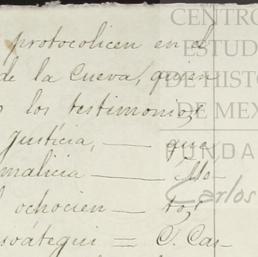 protocolicen en el
de la Cueva, quien
los testimonios
justicia, — que
malicia — Mo-
ochocien — tos
soátegui = C. Cas-
CENTRO
ESTUD
DE HISTO
DE MEX
FUNDA
Carlos